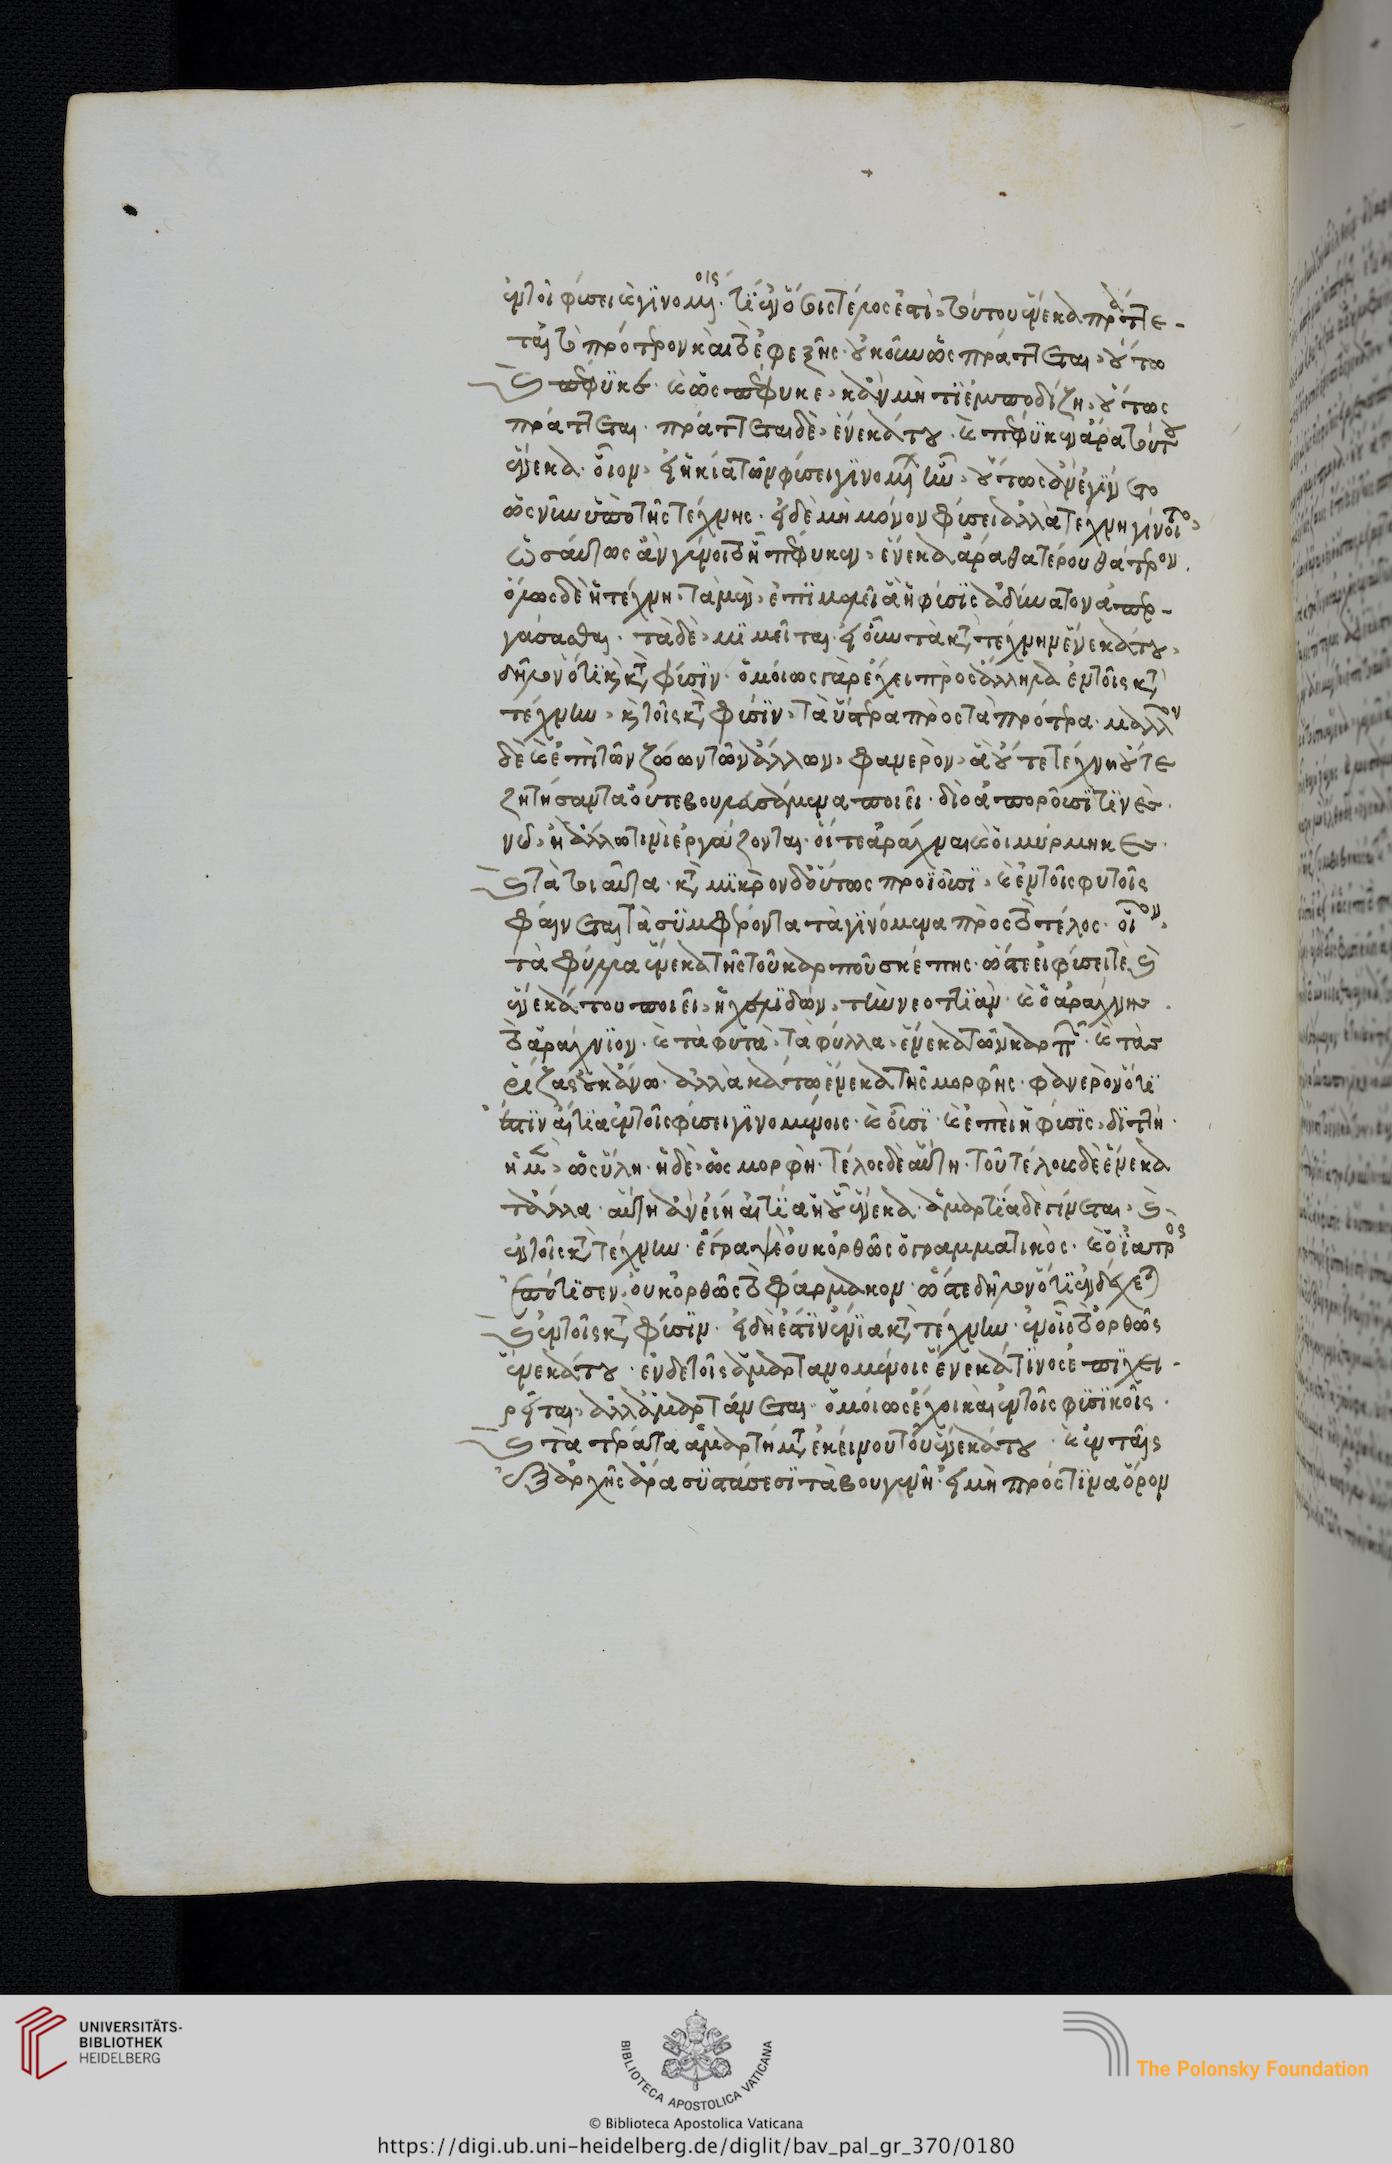 ἐν τοῖ φύσει καὶ γινομένοις. ἔτι ἐν ὅσοις τέλος ἐστὶ, τούτου ἕνεκα πράττε-
ται τὸ πρότερον καὶ τὸ ἐφεξῆς. οὐκοῦν ὡς πράττεται, οὕτω
καὶ πέφυκε. καὶ ὡς πέφυκε, κἂν μή τι ἐμποδίζη, οὕτως
πράττεται. πράττεται δὲ, ἕνεκά του. καὶ πέφυκεν ἄρα τούτου
ἕνεκα. οἷον, εἰ ἡ οἰκία τῶν φύσει γινομένων, οὕτως ἂν ἐγένετο
ὡς νῦν ὑπὸ τῆς τέχνης. εἰ δὲ μὴ μόνον φύσει ἀλλὰ τέχνη γίνοιτο,
ὡσαύτως ἂν γίνοιτο ἧ πέφυκεν, ἕνεκα ἄρα θατέρου θάτερον.
ὅλως δὲ ἡ τέχνη, τὰ μὲν, ἐπιτελεῖ ἃ ἡ φύσις ἀδύνατον ἀπερ-
γάσασθαι. τὰ δὲ, μιμεῖται. εἰ οὖν τὰ κατὰ τέχνην ἕνεκά του,
δῆλον ὅτι καὶ κατὰ φύσιν. ὁμοίως γὰρ ἔχει πρὸς ἄλληλα ἐν τοῖς κατὰ
τέχνην, καὶ τοῖς κατὰ φύσιν, τὰ ὕστερα πρὸς τὰ πρότερα. μάλλον
δὲ καὶ ἐπὶ τῶν ζώων τῶν ἄλλων, φανερὸν, ἃ οὔτε τέχνη οὔτε
ζητήσαντα οὔτε βουλευσάμενα ποιεῖ. διὸ ἀποροῦσί τινες
νῷ, ἢ ἄλλω τινὶ ἐργάζονται. οἵ τε ἀράχναι καὶ οἱ μύρμηκες.
καὶ τὰ τοιαῦτα. κατὰ μικρὸν δ' οὕτως προϊοῦσι, καὶ ἐν τοῖς φυτοῖς
φαίνεται τὰ συμφέροντα τὰ γινόμενα πρὸς τὸ τέλος. οἷον,
τὰ φύλλα ἕνεκα τῆς τοῦ καρποῦ σκέπης. ὥστε εἰ φύσει τε καὶ
ἕνεκά του ποιεῖ, ἡ χελιδὼν, τὴν νεοττιὰν. καὶ ὁ ἀράχνης
τὸ ἀράχνιον. καὶ τὰ φυτὰ, τὰ φύλλα, ἕνεκα τῶν καρπῶν. καὶ τὰς
ῥίζας οὐκ ἄνω. ἀλλὰ κάτω ἕνεκα τῆς μορφῆς. φανερὸν ὅτι
ἐστὶν αἰτία ἐν τοῖς φύσει γινομένοις. καὶ οὖσι. καὶ ἐπεὶ ἡ φύσις, διττὴ.
ἡ μὲν, ὡς ὕλη. ἡ δὲ, ὡς μορφὴ. τέλος δὲ αὕτη. τοῦ τέλους δὲ ἕνεκα
τἄλλα. αὕτη ἂν εἴη αἰτία ἡ οὗ ἕνεκα. ἁμαρτία δὲ γίνεται, καὶ
ἐν τοῖς κατὰ τέχνην. ἔγραψε οὐκ ὀρθῶς ὁ γραμματικὸς. καὶ ὁ ἰατρὸς
ἐπότισεν, οὐκ ὀρθῶς τὸ φάρμακον. ὥστε δῆλον ὅτι ἐνδέχεται
καὶ ἐν τοῖς κατὰ φύσιν. εἰ δὴ ἐστὶν ἔνια κατὰ τέχνην. ἐν οἷς τὸ ὀρθῶς
ἕνεκά του. ἐν δὲ τοῖς ἁμαρτανομένοις ἕνεκά τινος ἐπιχει-
ρεῖται, ἀλλ' ἁμαρτάνεται. ὁμοίως ἔχοι καὶ ἐν τοῖς φυσικοῖς.
καὶ τὰ τέρατα ἁμαρτήματα ἐκείνου τοῦ ἕνεκά του. καὶ ἐν ταῖς
ἐξ ἀρχῆς ἄρα συστάσεσι τὰ βουγενῆ. εἰ μὴ πρός τινα ὅρον
UNIVERSITÄTS-
BIBLIOTHEK
HEIDELBERG
BIBLIOTECA APOSTOLICA VATICANA
© Biblioteca Apostolica Vaticana
The Polonsky Foundation
https://digi.ub.uni-heidelberg.de/diglit/bav_pal_gr_370/0180